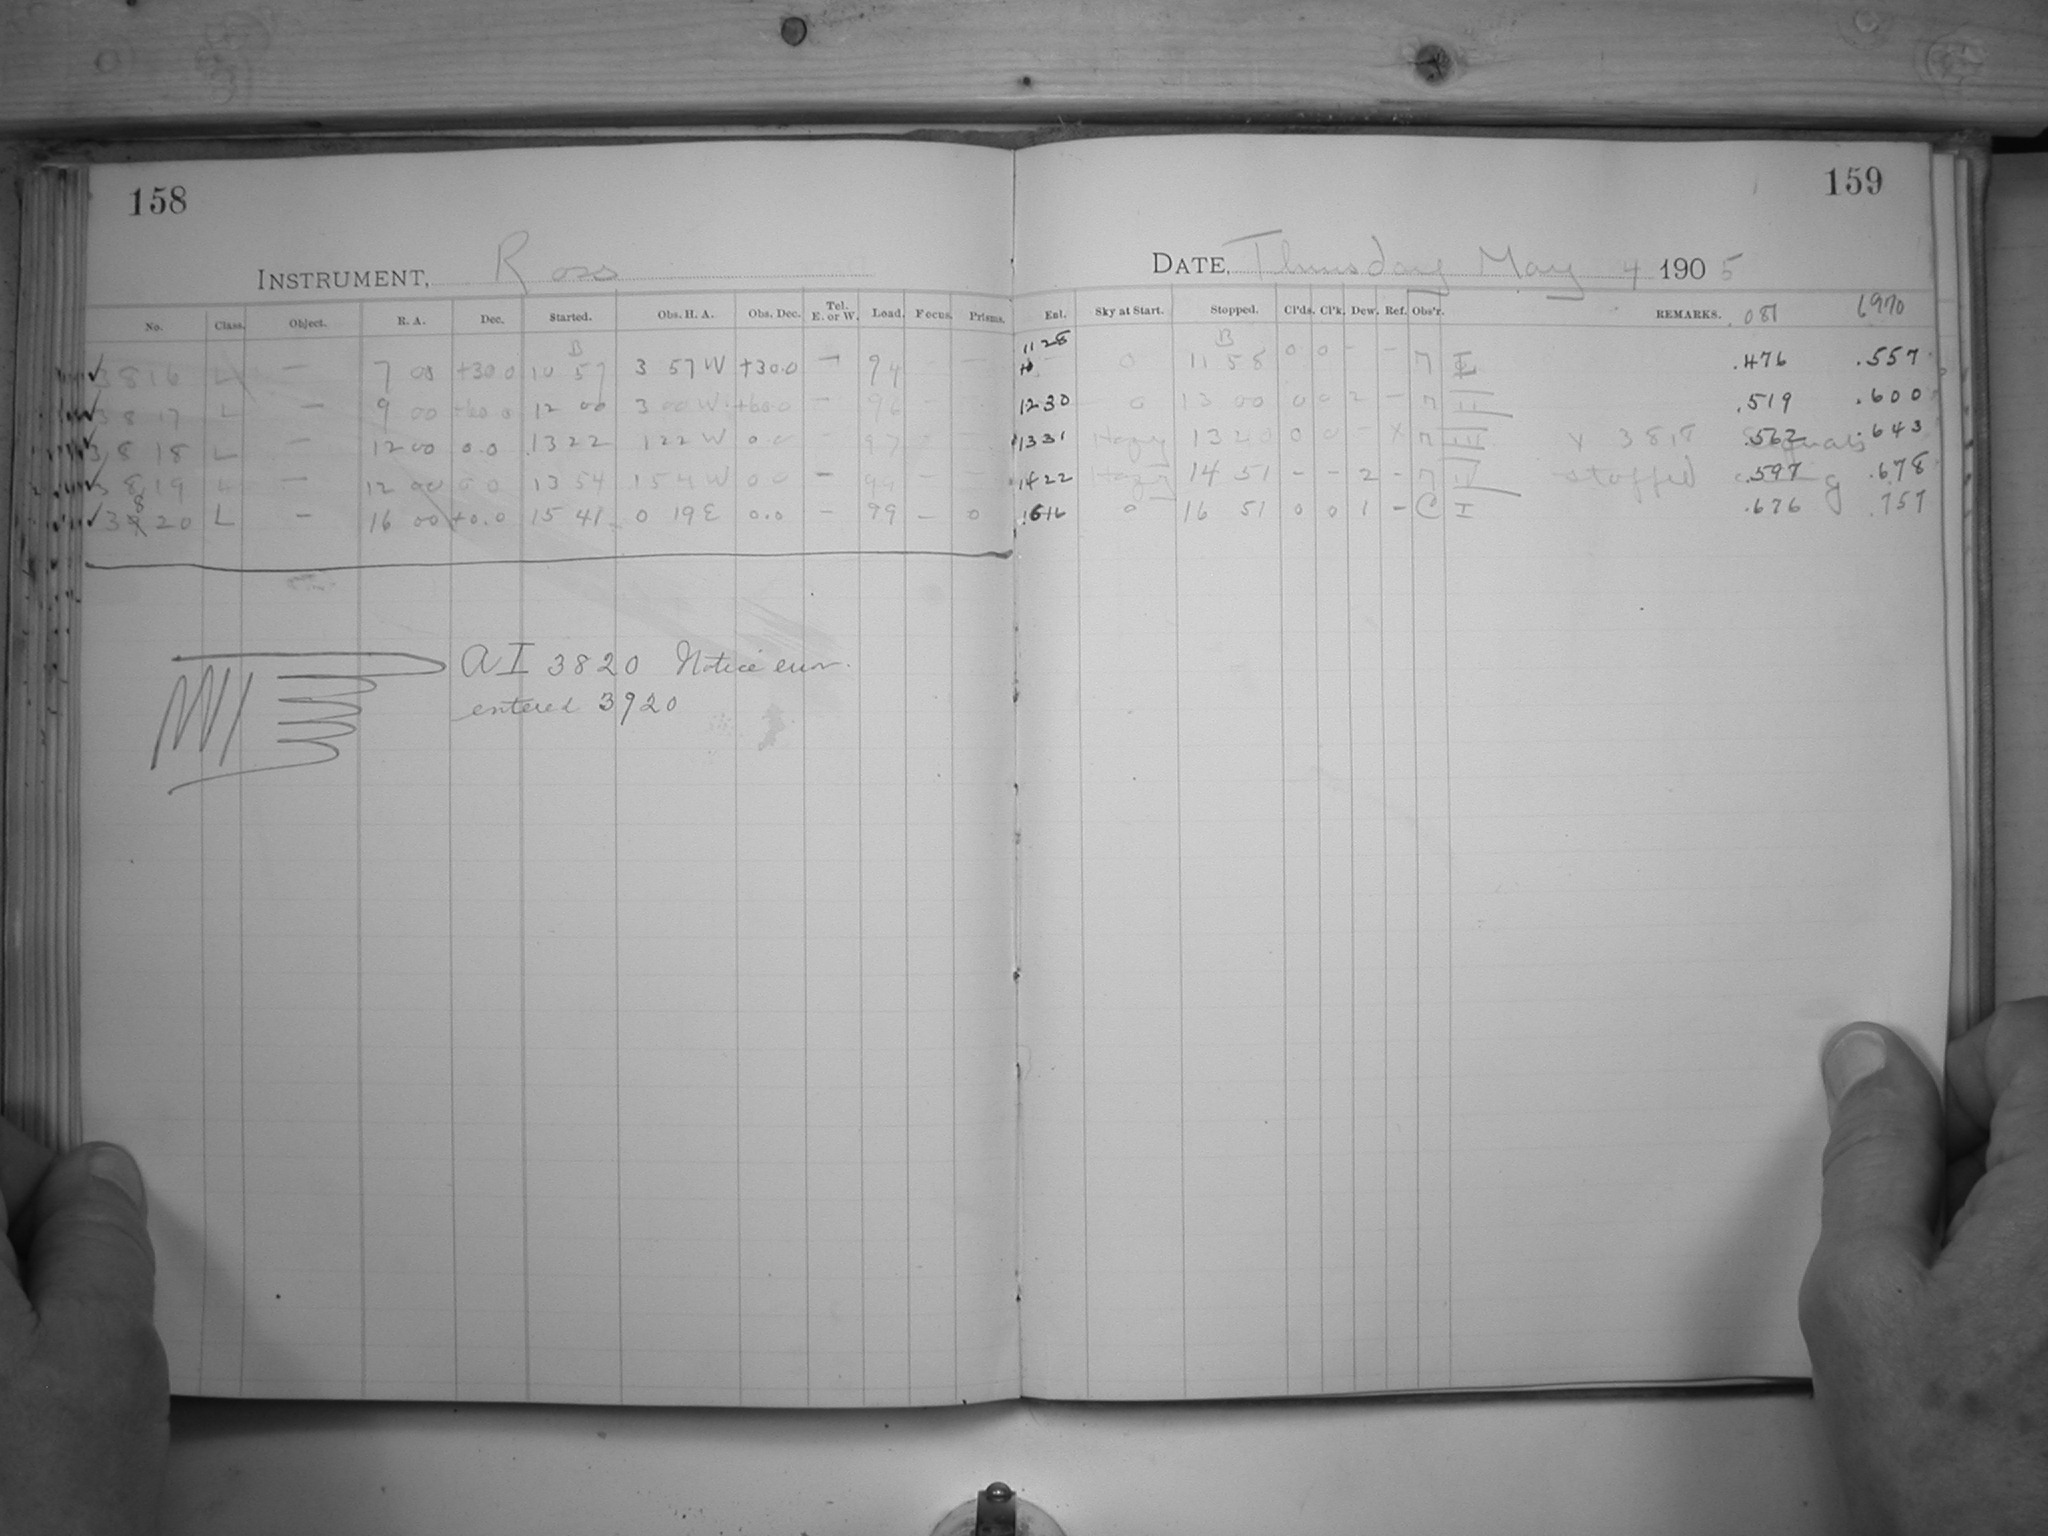 158
INSTRUMENT, Ross
No. Class. Object. R. A. Dec. Started. Obs. H. A. Obs. Dec. Tel. E. or W. Load. Focus. Prisms.
B
✓3816 L — 7 00 +30.0 10 57 3 57 W +30.0 — 94 — —
✓3817 L — 9 00 +60.0 12 00 3 00 W +60.0 — 96 — —
✓3818 L — 12 00 0.0 13 22 1 22 W 0.0 — 97
✓3819 L — 12 00 0.0 13 54 1 54 W 0.0 — — —
✓3820 L — 16 00 +0.0 15 41 0 19 E 0.0 — 99 — 0
AI 3820 Notice error.
entered 3920
159
DATE, Thursday May 4 1905
Ent. Sky at Start. Stopped. Cl'ds. Cl'k. Dew. Ref. Obs'r. REMARKS. .081 1970
11 28 B
0 11 58 0 0 — — .476 .557
12 30 0 13 00 0 0 2 — III .519 .600
13 31 Hazy 0 0 — X III x 3818 .562 .643
14 22 Hazy 14 51 — — 2 — stopped .597 .678
16 16 0 16 51 0 0 1 — C I .676 .757